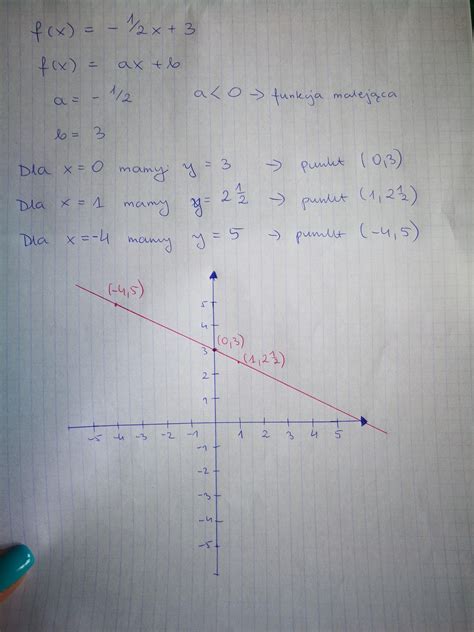 f(x) = - 1/2 x + 3
f(x) = ax + b
a = - 1/2 a < 0 → funkcja malejąca
b = 3
Dla x = 0 mamy y = 3 → punkt (0,3)
Dla x = 1 mamy y = 2 1/2 → punkt (1, 2 1/2)
Dla x = -4 mamy y = 5 → punkt (-4, 5)
(-4,5)
5
4
(0,3)
3
(1, 2 1/2)
2
1
-5 -4 -3 -2 -1 1 2 3 4 5
-1
-2
-3
-4
-5